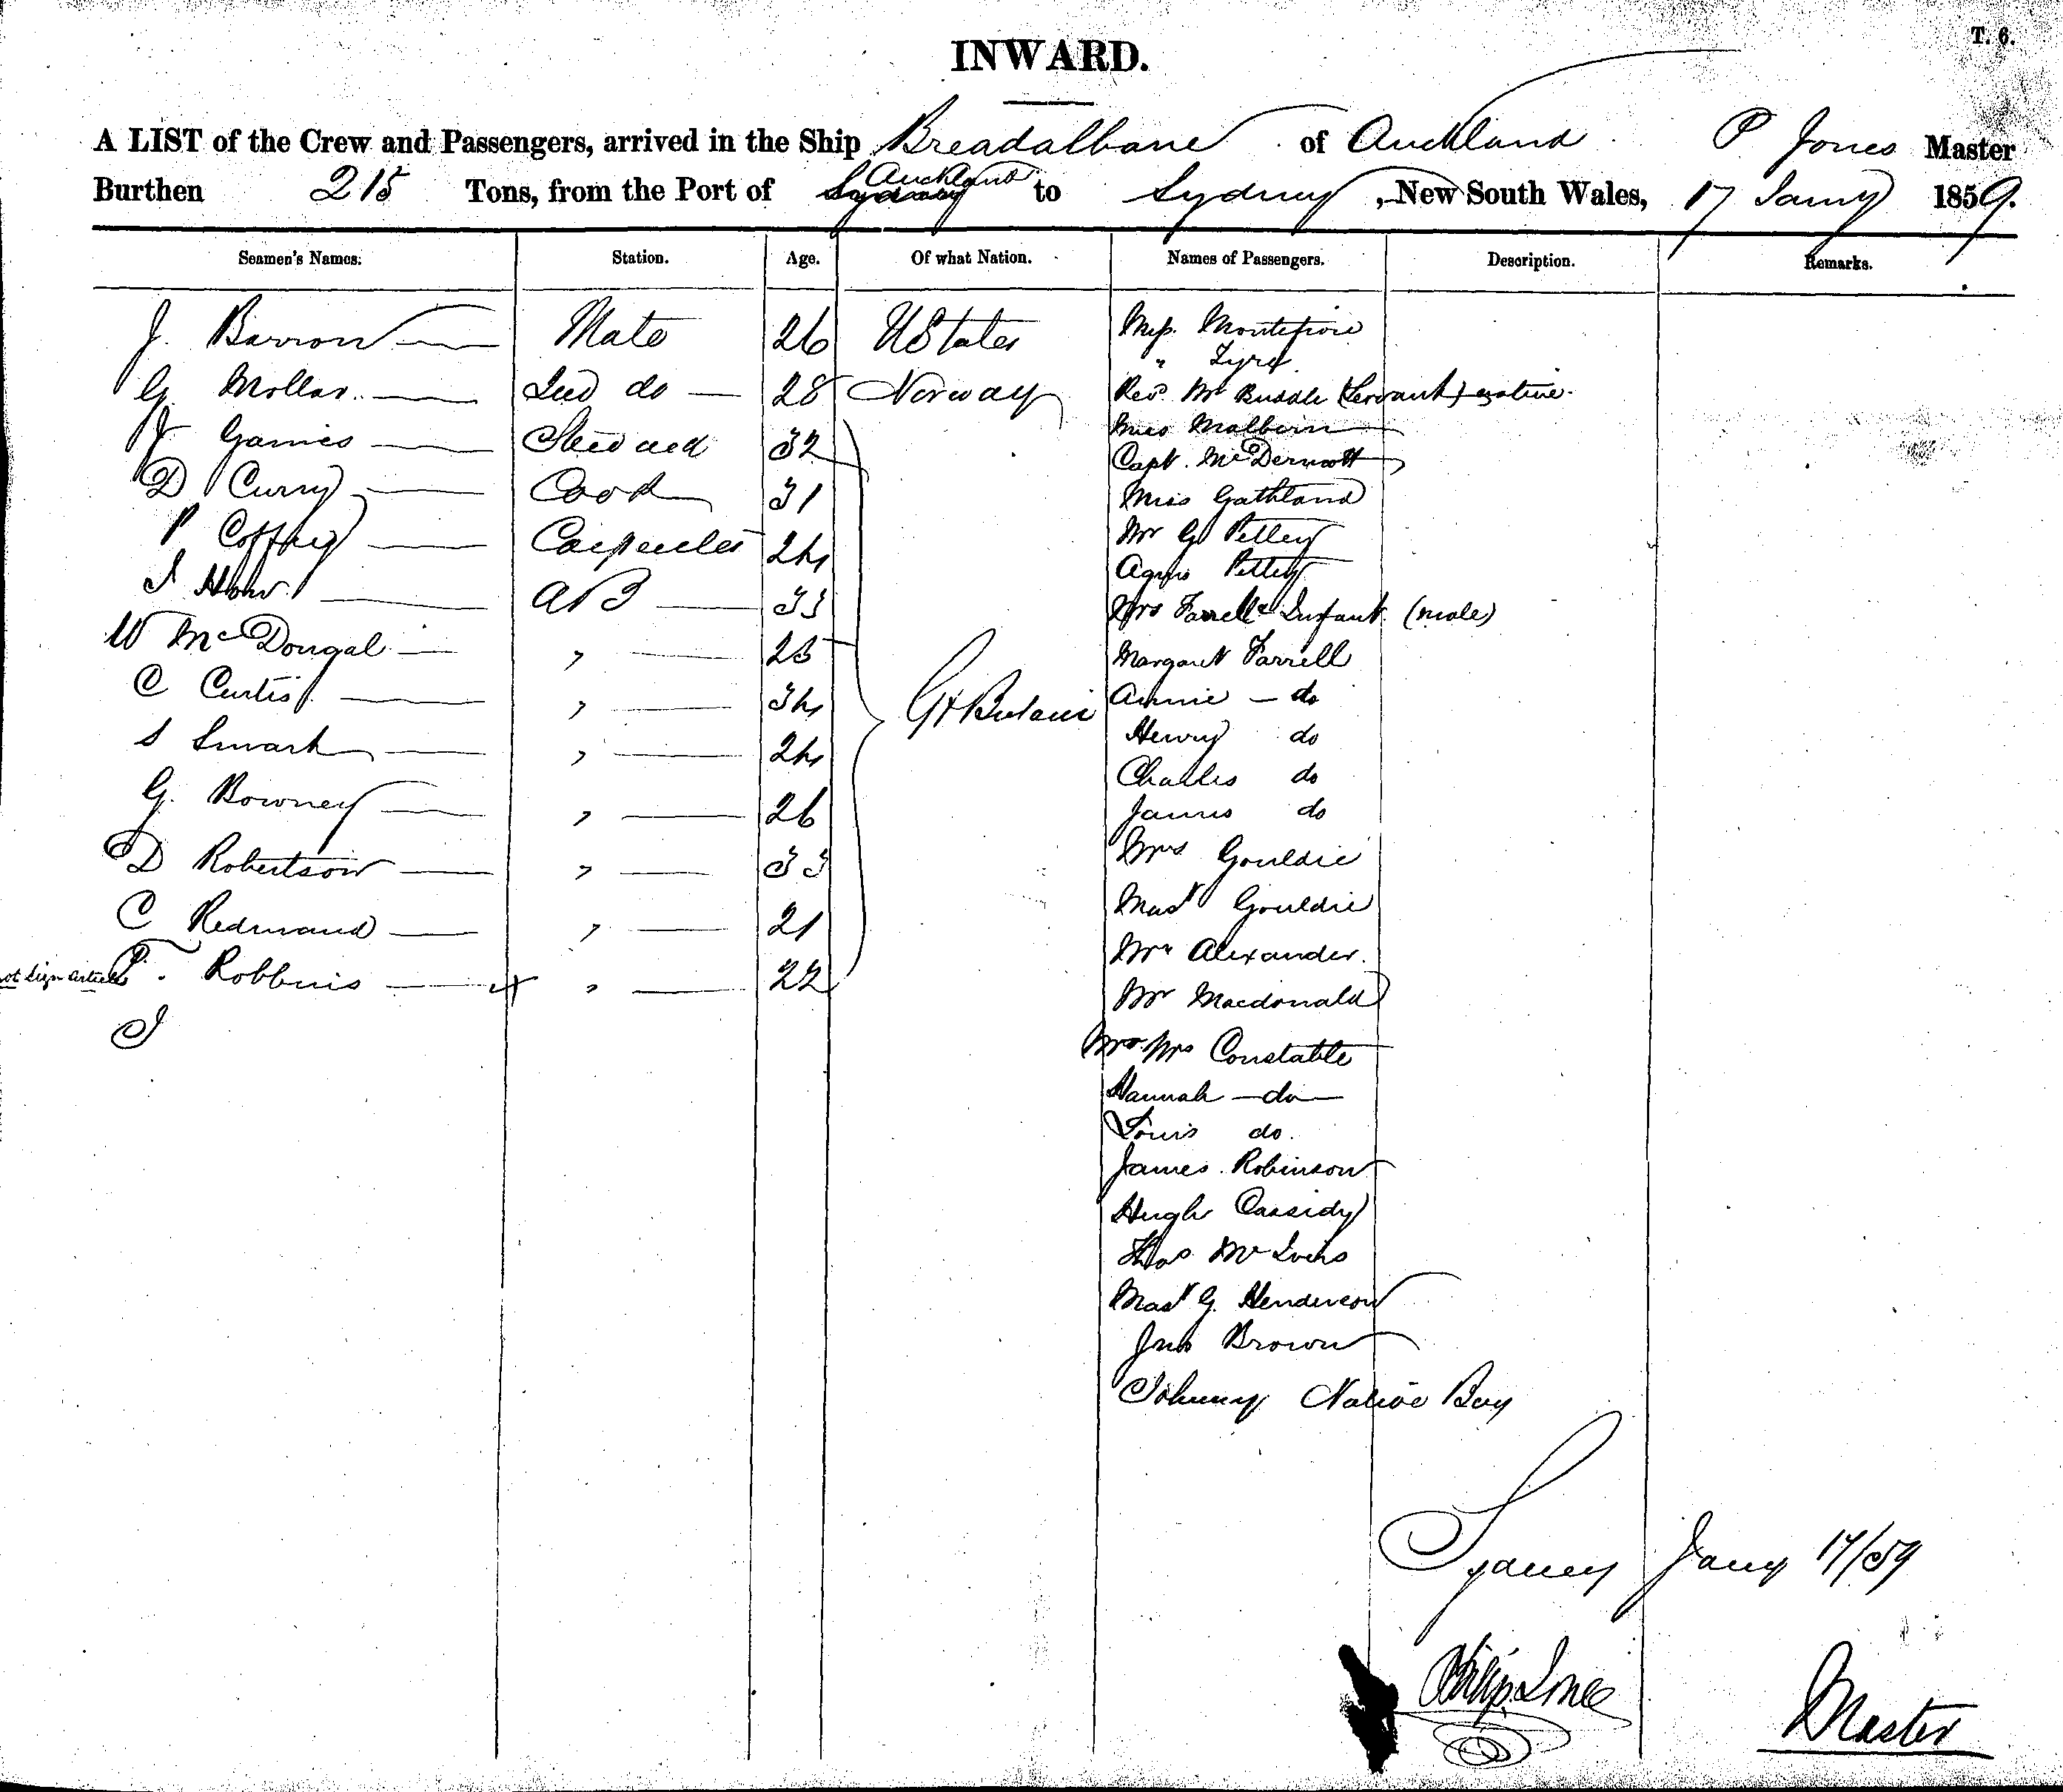 T. 6.
INWARD.
A LIST of the Crew and Passengers, arrived in the Ship Breadalbane of Auckland P Jones Master
Burthen 215 Tons, from the Port of Auckland to Sydney, New South Wales, 17 Jany 1859.
Seamen's Names. Station. Age. Of what Nation. Names of Passengers. Description. Remarks.
J. Barron Mate 26 UStates Montefiore
G. Mollar 2nd do 28 Norway Revd. Mr Buddle (Servant) native
Steward 32 Miss Malbin
D Curry Cook 31 Capt. McDermott
P Carpenter 24 Miss Gathland
AB 33 Mr G Petley
W McDougal " 23 Agnes Petley
C Curtis " 34 Mrs Farrell & Infant (male)
S Smart " 24 Margaret Farrell
G. Bowney " 26 Annie - do
D Robertson " 33 Henry do
C Redmand " 21 Charles do
not sign articles P. Robbins " 22 James do
Gt Britain
Mrs Gouldie
Mast Gouldie
Mr Alexander.
Mr Macdonald
Mr Mrs Constable
Hannah - do -
Louis do.
James Robinson
Hugh Cassidy
Thos
Mast G. Henderson
Jno Brown
Johnny Native Boy
Sydney Jany 17/59
Philip Jones
Master